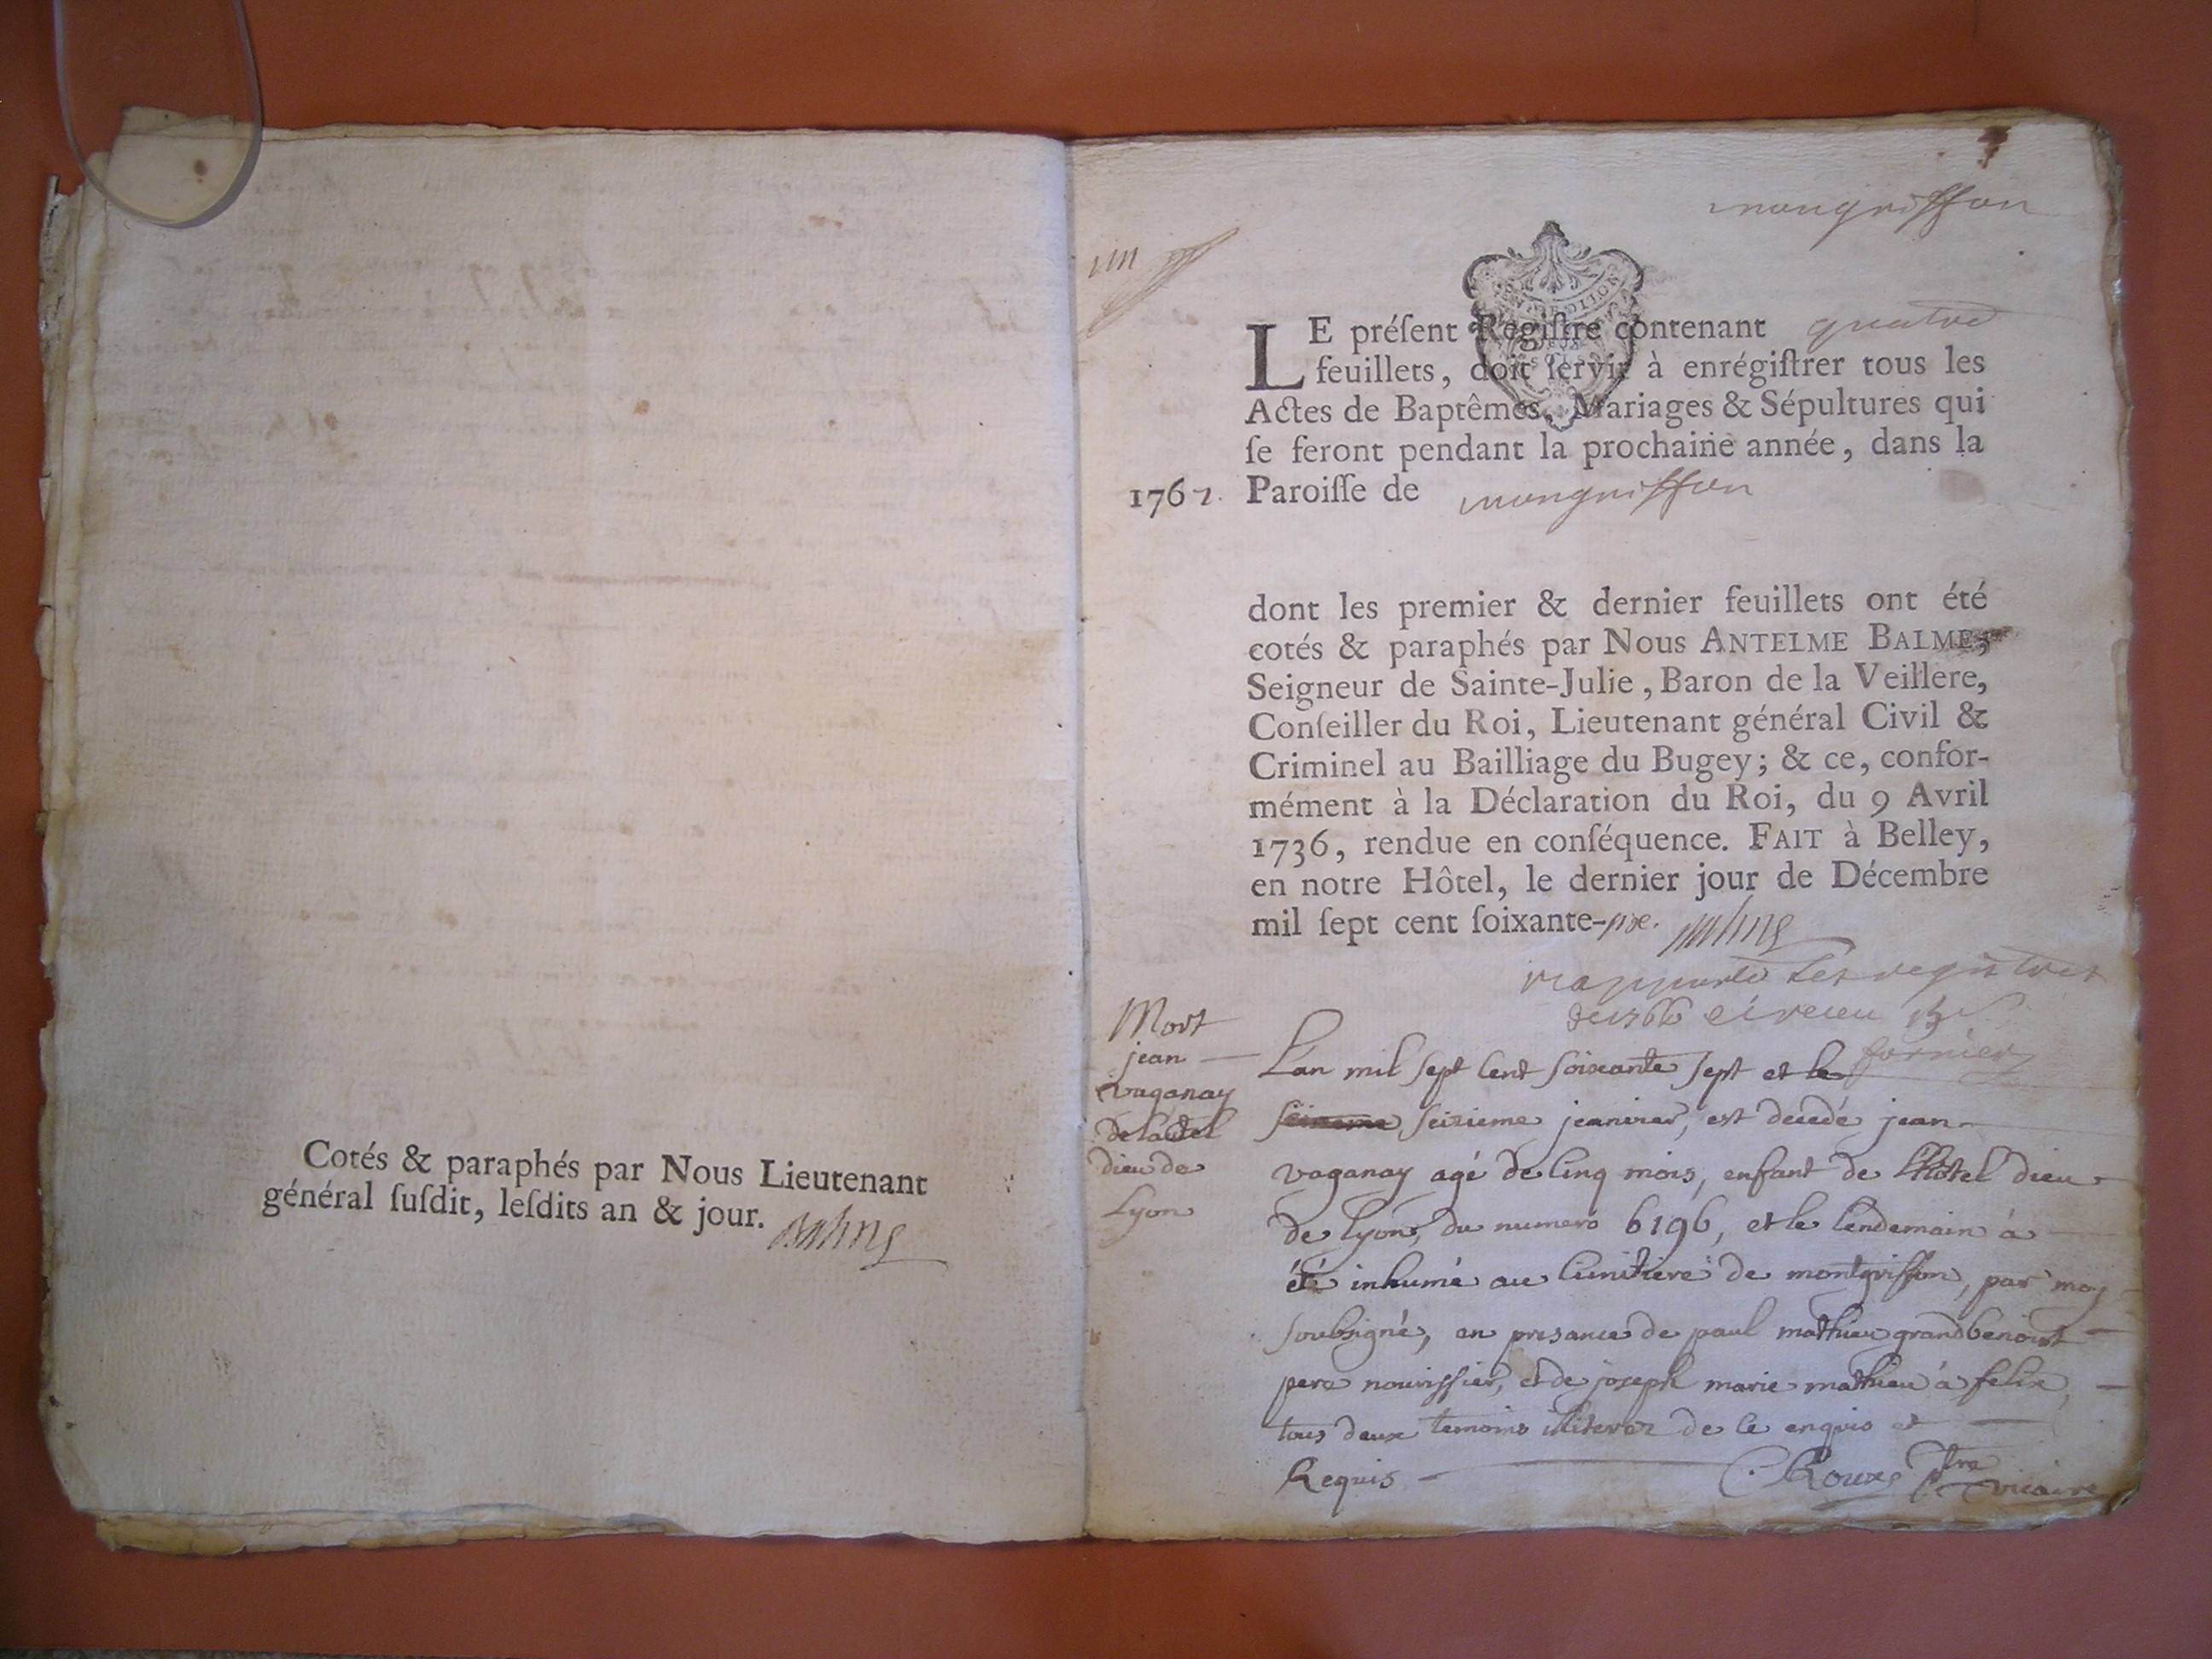 Cotés & paraphés par Nous Lieutenant
général ſuſdit, leſdits an & jour.
mongriffon
un
LE préſent Régiſtre contenant quatre
feuillets, doit ſervir à enrégiſtrer tous les
Actes de Baptêmes, Mariages & Sépultures qui
ſe feront pendant la prochaine année, dans la
1767. Paroiſſe de mongriffon
dont les premier & dernier feuillets ont été
cotés & paraphés par Nous ANTELME BALME,
Seigneur de Sainte-Julie, Baron de la Veillere,
Conſeiller du Roi, Lieutenant général Civil &
Criminel au Bailliage du Bugey; & ce, confor-
mément à la Déclaration du Roi, du 9 Avril
1736, rendue en conſéquence. FAIT à Belley,
en notre Hôtel, le dernier jour de Décembre
mil ſept cent ſoixante-six.
rapporté les registres
de 1766
Mort
jean
vaganay
de lautel
dieu de
Lyon
L'an mil sept cent soixante sept et le
seizieme jeanvier, est décedé jean
vaganay agé de cinq mois, enfant de l'hôtel dieu
de lyon, du numero 6196, et le lendemain à
été inhumé au cimitiere de montgriffon, par moy
soubsigné, en presance de paul mathieu grandbenoist
pere nourissier, et de joseph marie mathieu à felix,
tous deux temoins illiterez de ce enquis et
Requis
Roux ptre vicaire